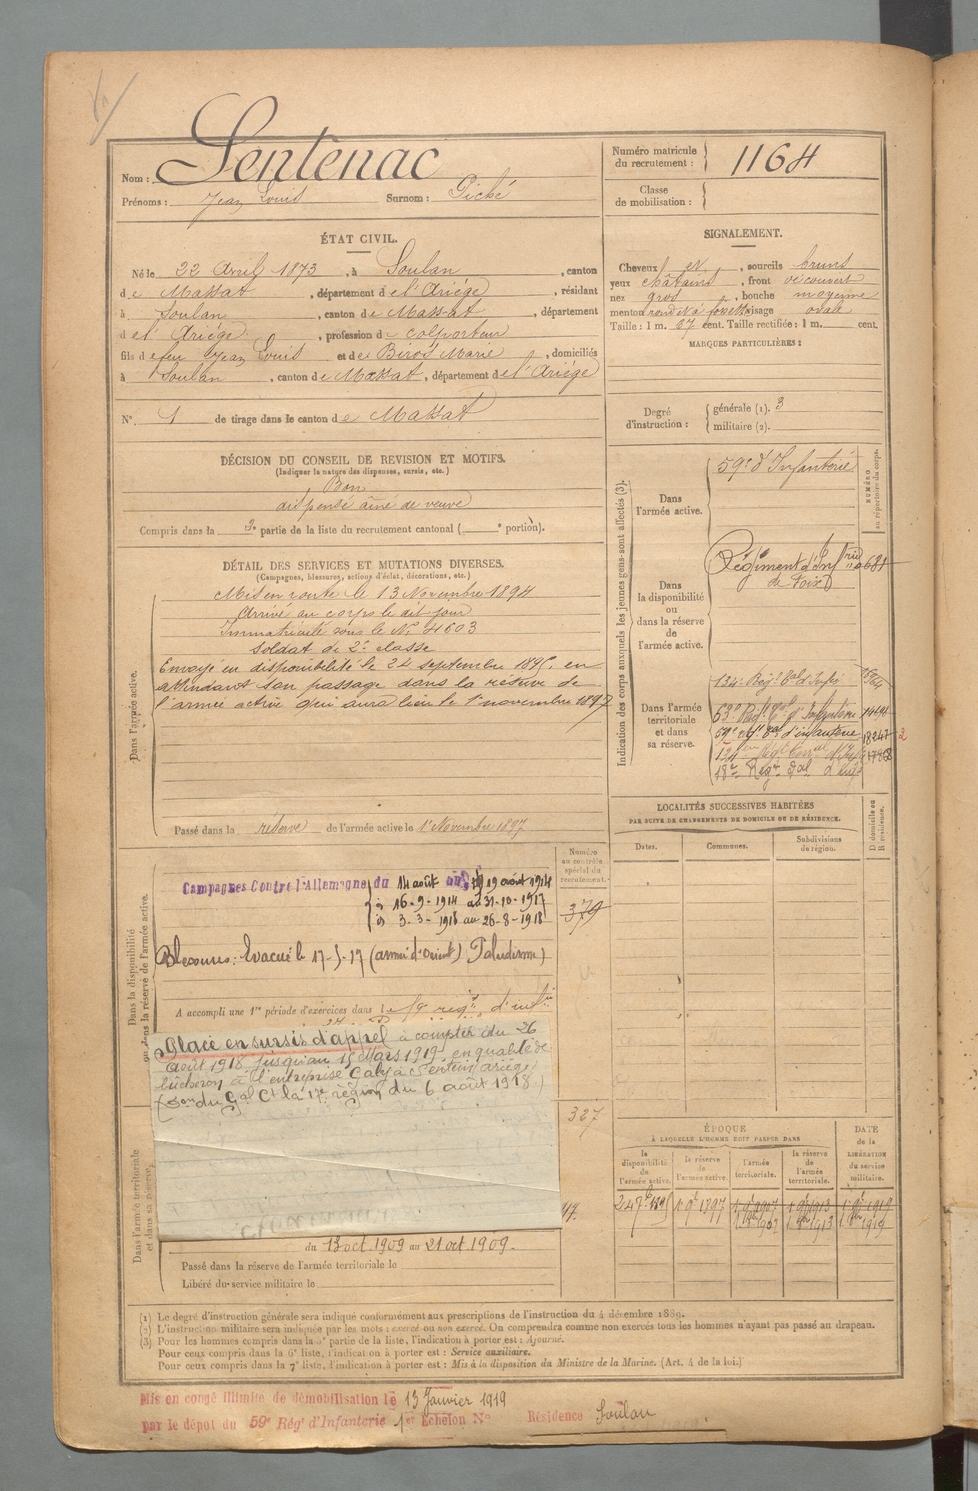 Nom : Sentenac
Prénoms : Jean Louis Surnom : Piché
Numéro matricule du recrutement : 1164
Classe de mobilisation :
ÉTAT CIVIL.
Né le 22 Avril 1873, à Soulan, canton
de Massat, département de l'Ariège, résidant
à Soulan, canton de Massat, département
de l'Ariège, profession de colporteur
fils de feu Jean Louis et de Biros Marie, domiciliés
à Soulan, canton de Massat, département de l'Ariège
N° 1 de tirage dans le canton de Massat
SIGNALEMENT.
Cheveux et, sourcils bruns
yeux châtains, front découvert
nez gros, bouche moyenne
menton rond et à fossette visage ovale
Taille : 1 m. 67 cent. Taille rectifiée : 1 m. cent.
MARQUES PARTICULIÈRES :
Degré d'instruction : générale (1). 3
militaire (2).
DÉCISION DU CONSEIL DE REVISION ET MOTIFS.
(Indiquer la nature des dispenses, sursis, etc.)
Bon
dispensé aîné de veuve
Compris dans la 2e partie de la liste du recrutement cantonal ( e portion).
DÉTAIL DES SERVICES ET MUTATIONS DIVERSES.
(Campagnes, blessures, actions d'éclat, décorations, etc.)
Dans l'armée active.
Mis en route le 13 Novembre 1894
Arrivé au corps le dit jour
Immatriculé sous le N° 4603
soldat de 2e classe
Envoyé en disponibilité le 24 septembre 1895, en
attendant son passage dans la réserve de
l'armée active qui aura lieu le 1er novembre 1897
Passé dans la réserve de l'armée active le 1er Novembre 1897
Indication des corps auxquels les jeunes gens sont affectés (3).
NUMÉRO au répertoire du corps.
Dans l'armée active.
59e d'Infanterie
Dans la disponibilité ou dans la réserve de l'armée active.
Régiment d'Infrie
de Foix
Dans l'armée territoriale et dans sa réserve.
134e Régt Tal d'Infie
63e Régt Tal d'Infanterie
59e Régt Tal d'infanterie 18247 2
18e Régt Tal d'Infie
LOCALITÉS SUCCESSIVES HABITÉES
PAR SUITE DE CHANGEMENTS DE DOMICILE OU DE RÉSIDENCE.
Dates. Communes. Subdivisions de région. D domicile ou R résidence.
Dans la disponibilité ou dans la réserve de l'armée active.
Numéro au contrôle spécial du recrutement.
379
Campagnes Contre l'Allemagne du 14 août au 19 août 1914
16-9-1914 au 31-10-1917
3-3-1918 au 26-8-1918
Blessures : Evacué le 17-5-17 (armée d'orient) Paludisme)
A accompli une 1re période d'exercices dans le régt d'infie
Placé en sursis d'appel à compter du 26
août 1918 jusqu'au 15 Mars 1919, en qualité de
bûcheron à l'entreprise Galy à Sentein ariège
(Don du Gal Ct la 17e région du 6 août 1918)
327
Dans l'armée territoriale et dans sa réserve.
du 13 oct. 1909 au 21 oct. 1909.
Passé dans la réserve de l'armée territoriale le
Libéré du service militaire le
ÉPOQUE
À LAQUELLE L'HOMME DOIT PASSER DANS
DATE de la LIBÉRATION du service militaire.
la disponibilité de l'armée active. la réserve de l'armée active. l'armée territoriale. la réserve de l'armée territoriale.
(1) Le degré d'instruction générale sera indiqué conformément aux prescriptions de l'instruction du 4 décembre 1889.
(2) L'instruction militaire sera indiquée par les mots : exercé ou non exercé. On comprendra comme non exercés tous les hommes n'ayant pas passé au drapeau.
(3) Pour les hommes compris dans la 5e partie de la liste, l'indication à porter est : Ajourné.
Pour ceux compris dans la 6e liste, l'indication à porter est : Service auxiliaire.
Pour ceux compris dans la 7e liste, l'indication à porter est : Mis à la disposition du Ministre de la Marine. (Art. 4 de la loi.)
Mis en congé illimité de démobilisation le 13 Janvier 1919
par le dépôt du 59e Régt d'Infanterie 1er Echelon N° Résidence Soulan